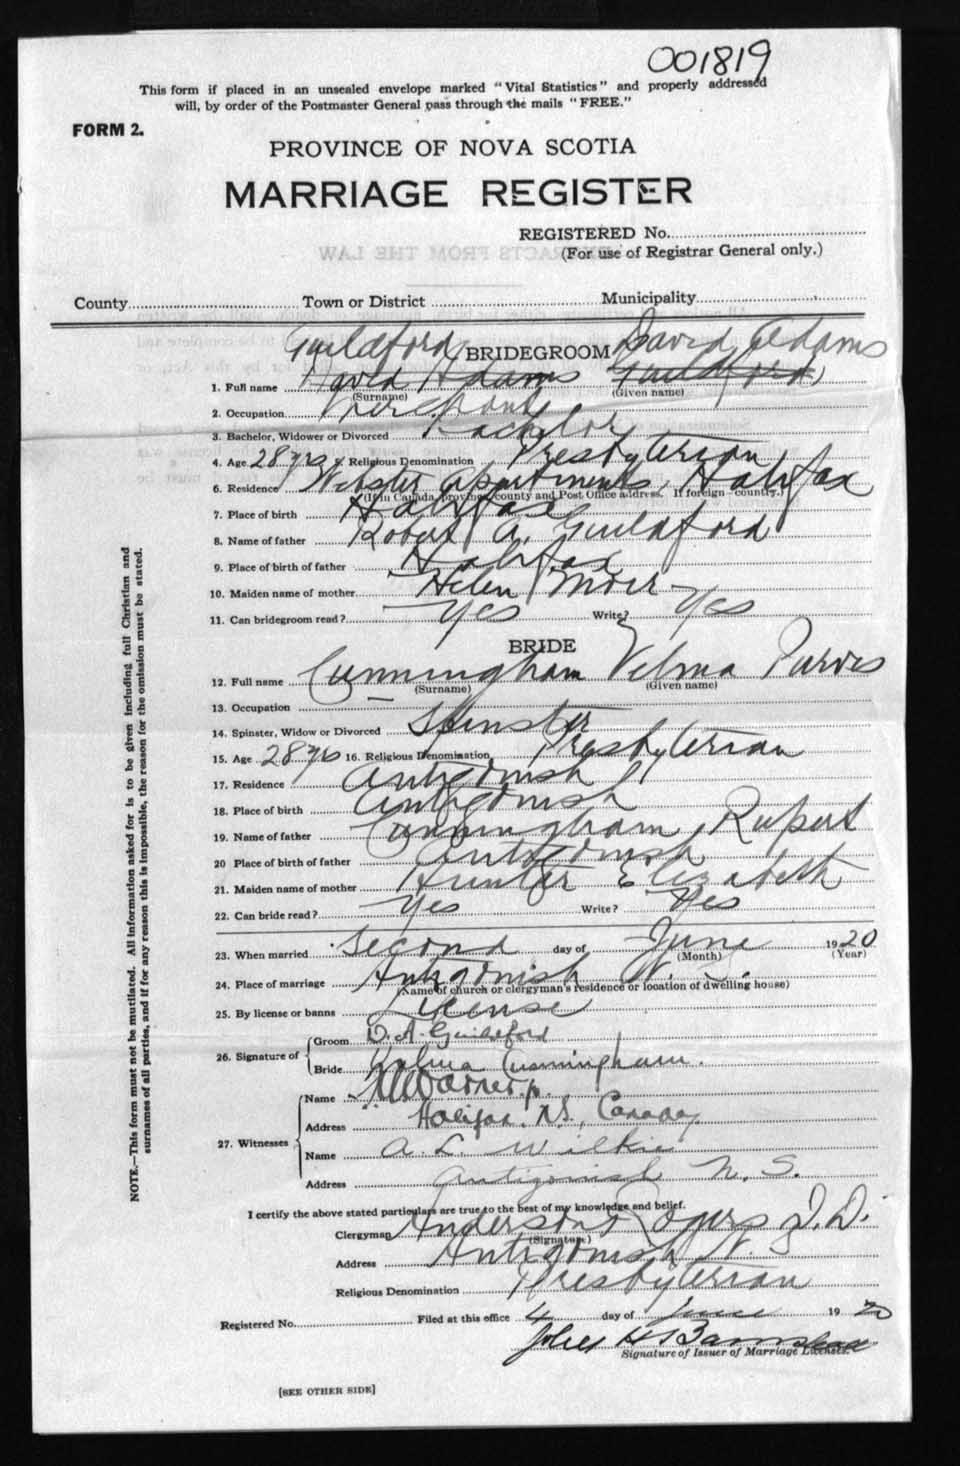 001819
This form if placed in an unsealed envelope marked "Vital Statistics" and properly addressed
will, by order of the Postmaster General pass through the mails "FREE."
FORM 2.
PROVINCE OF NOVA SCOTIA
MARRIAGE REGISTER
REGISTERED No.
(For use of Registrar General only.)
County Town or District Municipality
Guildford BRIDEGROOM David Adams
1. Full name David Adams Guildford
(Surname) (Given name)
2. Occupation Merchant
3. Bachelor, Widower or Divorced Bachelor
4. Age 28 yrs 5. Religious Denomination Presbyterian
6. Residence Webster Apartments, Halifax
(If in Canada, province, county and Post Office address. If foreign—country.)
7. Place of birth Halifax
8. Name of father Robert A. Guildford
9. Place of birth of father Halifax
10. Maiden name of mother Helen
11. Can bridegroom read? Yes Write? Yes
BRIDE
12. Full name Cunningham Velma Purves
(Surname) (Given name)
13. Occupation
14. Spinster, Widow or Divorced Spinster
15. Age 28 yrs 16. Religious Denomination Presbyterian
17. Residence Antigonish
18. Place of birth Antigonish
19. Name of father Cunningham, Rupert
20 Place of birth of father Antigonish
21. Maiden name of mother Hunter Elizabeth
22. Can bride read? Yes Write? Yes
23. When married Second day of June 1920
(Month) (Year)
24. Place of marriage Antigonish N. S.
(Name of church or clergyman's residence or location of dwelling house)
25. By license or banns License
26. Signature of Groom D. A. Guildford
Bride Velma Cunningham.
27. Witnesses
Name
Address Halifax, N.S., Canada,
Name A. L. Wilkie
Address Antigonish N. S.
I certify the above stated particulars are true to the best of my knowledge and belief.
Clergyman Anderson Rogers D. D.
(Signature)
Address Antigonish N. S.
Religious Denomination Presbyterian
Registered No. Filed at this office 4 day of June 1920
H Barnstead
Signature of Issuer of Marriage Licenses.
[SEE OTHER SIDE]
NOTE.—This form must not be mutilated. All information asked for is to be given including full Christian and
surnames of all parties, and if for any reason this is impossible, the reason for the omission must be stated.